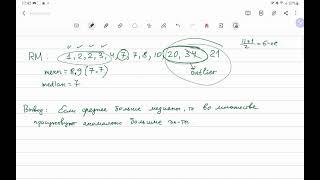 11+1
2 = 6-ое
RM: 1, 2, 2, 3, 4, 7, 7, 8, 10, 20, 34 21
mean = 8,9 (7.7) outlier
median = 7
Вывод: Если среднее больше медианы, то во множестве
присутствуют аномально большие эл-ты